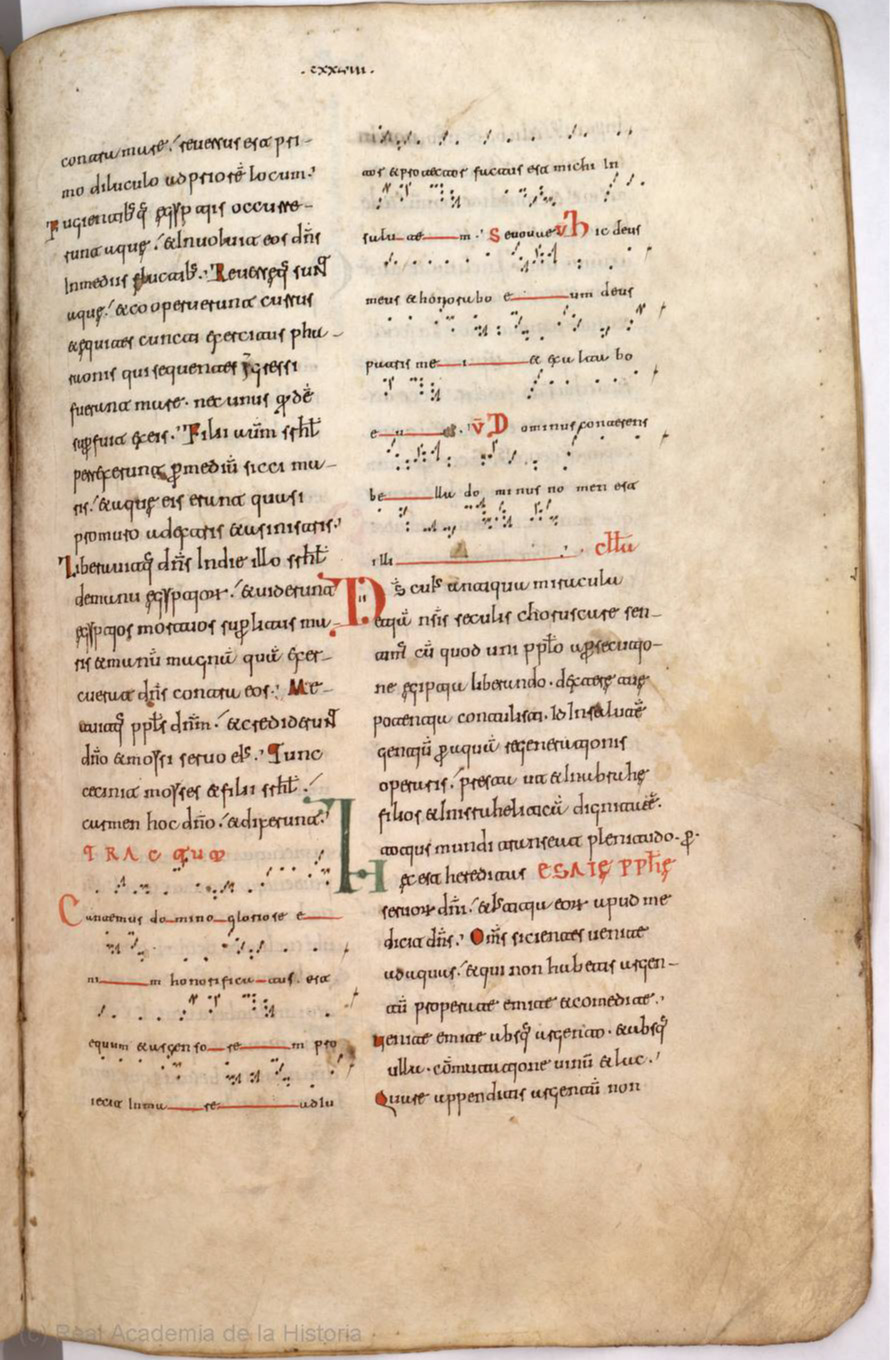 .cxxuiii.
contra mare; reuersus est pri-
mo diluculo ad priorē locum.
Fugientibꝫq; egyptiis occurre-
runt aque; & inuoluit eos dn̄s
in mediis fluctibꝫ. Reuerseq; sun̄t
aque; & cooperuerunt currus
& equites cuncti exercitus pha-
raonis qui sequentes ingressi
fuerant mare. nec unus qͥdē
superfuit ex eis. Filii autm̄ srl̄
perrexerunt ꝑ mediū sicci ma-
ris; & aque eis erant quasi
pro muro a dextris & a sinistris.
Liberauitq; dn̄s in die illo srl̄
de manu egyptiorꝫ; & uiderunt
egyptios mortuos sup litus ma-
ris & manū magnā quā exer-
cuerat dn̄s contra eos. Me-
tuitq; ppl̄s dn̄m. & crediderun̄t
dn̄o & mossi seruo eiꝫ. Tunc
cecinit mosses & filii srl̄;
carmen hoc dn̄o; & dixerunt.
TRACTUM
Cantemus do_mino_gloriose e____
ni____m honorifica_tus. est
equum & ascenso_re____m pro
iecit in ma____re________adiu
tor & protector factus est michi in
salu_te____m. Se uouae V̄ Hic deus
meus & honorabo e______um deus
patris me__i______& exalta bo
e__u____m. V̄ Dominus conterens
be____lla do minus no men est
illi__________. cll̄a
Ds̄ cuiꝫ antiqua miracula
etiā nr̄is seculis choruscare sen-
tim̄ cū quod uni pplo a persecutio-
ne egiptia liberando. dextere tue
potentia contulisti. id in salutē
gentiū per aquā regenerationis
operaris; presta ut & in abrahe
filios & in israheliticā dignitatē.
totius mundi transeat plenitudo. ꝑ.
Hec est hereditas ESAIE PPĥE
seruorꝫ dn̄i; & iusticia eorꝫ apud me
dicit dn̄s. Om̄s sicientes uenite
ad aquas; & qui non habetis argen-
tū properate emite & comedite.
Uenite emite absq; argento. & absq;
ulla. cōmutatione uinū & lac.
Quare appenditis argentū non
(c) Real Academia de la Historia